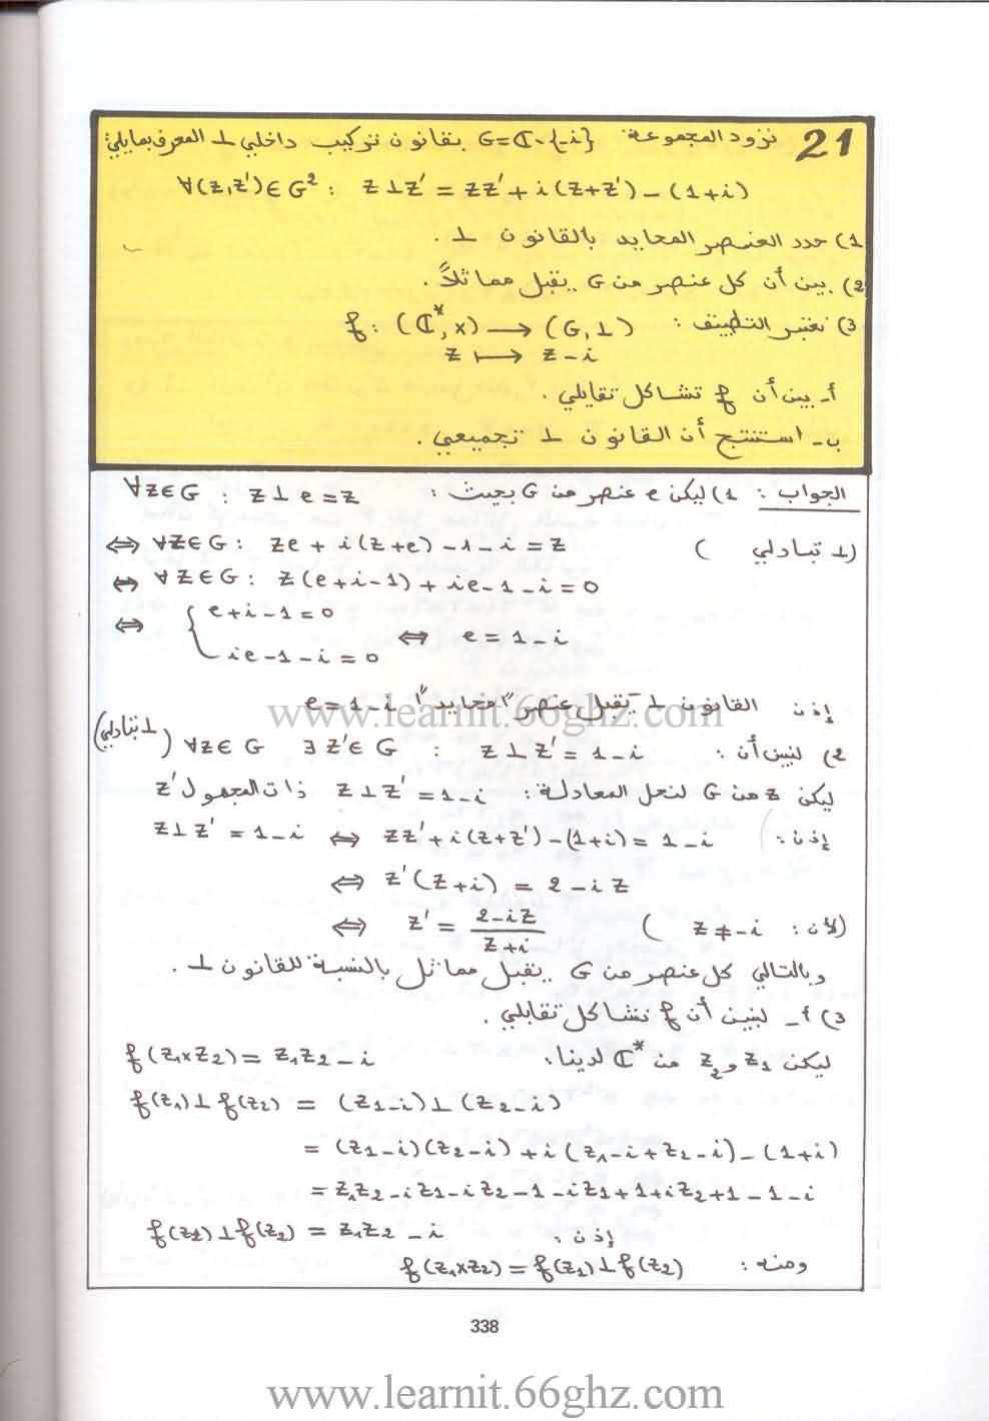 21 نزود المجموعة G=ℂ-{-i} بقانون تركيب داخلي ⊥ المعرف بمايلي:
∀(z,z')∈G² : z⊥z' = zz'+i(z+z')-(1+i)
1) حدد العنصر المحايد بالقانون ⊥.
2) بين أن كل عنصر من G يقبل مماثلاً.
3) نعتبر التطبيق : f: (ℂ*,×) → (G,⊥)
z ↦ z-i
أ- بين أن f تشاكل تقابلي.
ب- استنتج أن القانون ⊥ تجميعي.
الجواب : 1) ليكن e عنصر من G بحيث : ∀z∈G : z⊥e=z
(⊥ تبادلي ) ⇔ ∀z∈G: ze+i(z+e)-1-i=z
⇔ ∀z∈G: z(e+i-1)+ie-1-i=0
⇔ { e+i-1=0
ie-1-i=0 ⇔ e=1-i
إذن القانون ⊥ يقبل عنصرا "محايدا" e=1-i
www.learnit.66ghz.com
2) لنبين أن : ∀z∈G ∃z'∈G : z⊥z'=1-i (⊥ تبادلي)
ليكن z من G لنحل المعادلة : z⊥z'=1-i ذات المجهول z'
إذن : z⊥z'=1-i ⇔ zz'+i(z+z')-(1+i)=1-i
⇔ z'(z+i)=2-iz
⇔ z'=\frac{2-iz}{z+i} (لأن : z≠-i )
وبالتالي كل عنصر من G يقبل مماثل بالنسبة للقانون ⊥.
3) أ- لنبين أن f تشاكل تقابلي.
ليكن z₁ و z₂ من ℂ* لدينا. f(z₁×z₂)=z₁z₂-i
f(z₁)⊥f(z₂) = (z₁-i)⊥(z₂-i)
= (z₁-i)(z₂-i)+i(z₁-i+z₂-i)-(1+i)
= z₁z₂-iz₁-iz₂-1-iz₁+1+iz₂+1-1-i
إذن : f(z₁)⊥f(z₂) = z₁z₂-i
ومنه : f(z₁×z₂)=f(z₁)⊥f(z₂)
338
www.learnit.66ghz.com